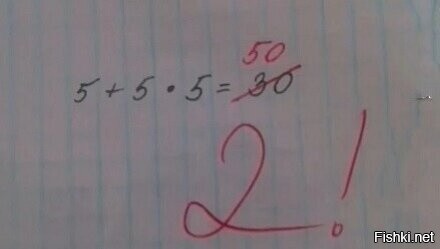 50
5 + 5 · 5 = 30
2!
Fishki.net